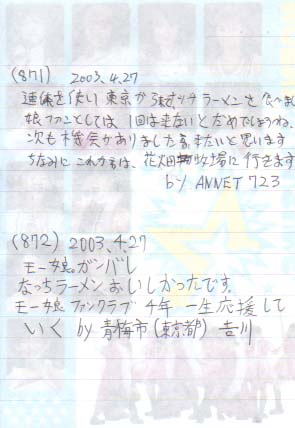 (871) 2003.4.27
連休を使い東京から来てナッチラーメンを食べま
娘ファンとしては、1回は来ないとだめでしょうね、
次も機会がありましたら来たいと思います
ちなみにこれからは、花畑牧場に行きます
by ANNET 723
(872) 2003.4.27
モー娘ガンバレ
なっちラーメンおいしかったです。
モー娘ファンクラブ4年 一生応援して
いく by 青梅市(東京都) 吉川